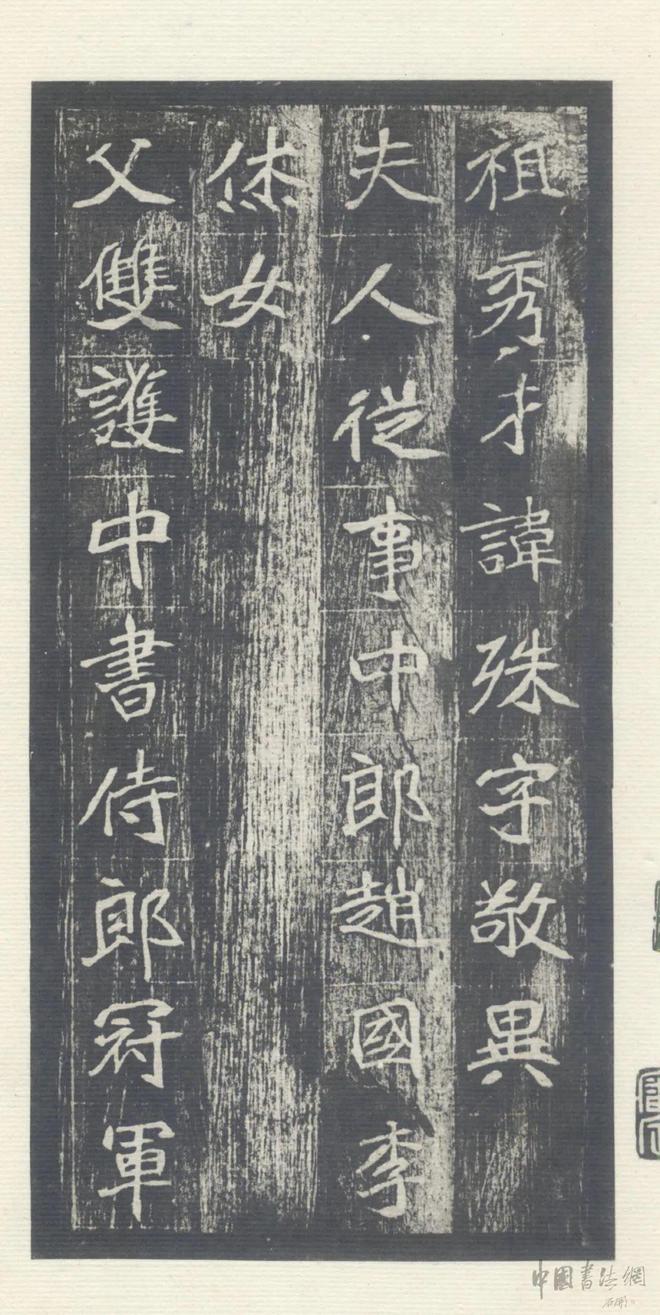 祖秀才諱殊字敬異
夫人從事中郎趙國李
烋女
父雙護中書侍郎冠軍
中國書法網